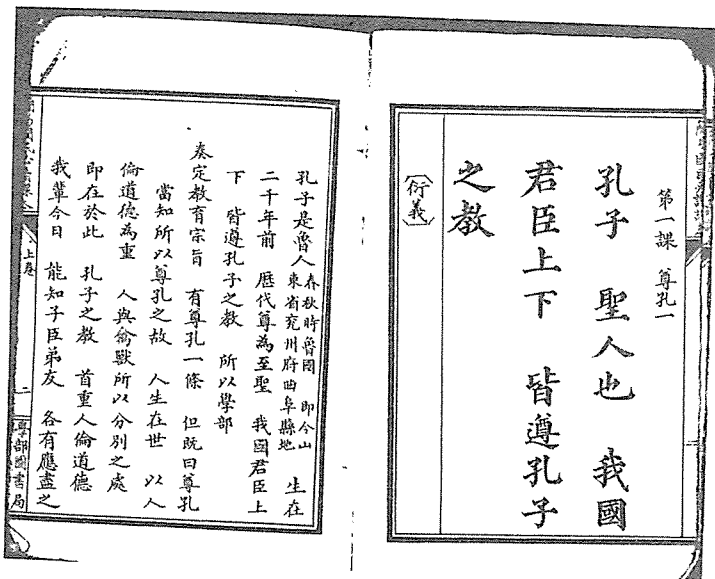 第一課 尊孔一
孔子 聖人也 我國
君臣上下 皆遵孔子
之教
〔衍義〕
孔子是魯人 春秋時魯國 即今山東省兗州府曲阜縣地 生在
二千年前 歷代尊為至聖 我國君臣上
下 皆遵孔子之教 所以學部
奏定教育宗旨 有尊孔一條 但既曰尊孔
當知所以尊孔之故 人生在世 以人
倫道德為重 人與禽獸所以分別之處
即在於此 孔子之教 首重人倫道德
我輩今日 能知子臣弟友 各有應盡之
上卷
二
學部圖書局